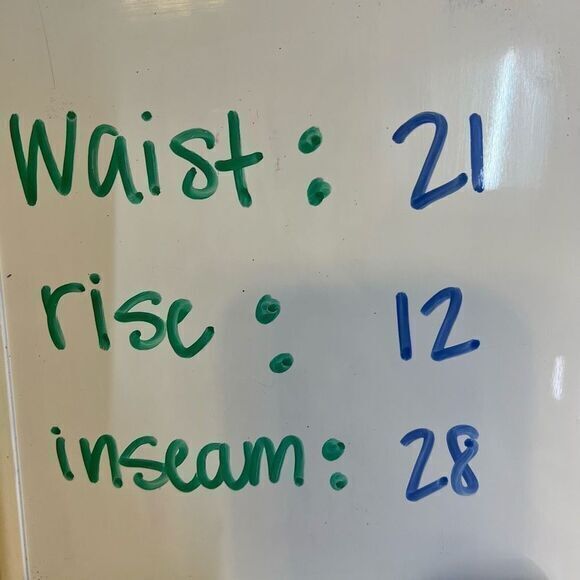 Waist: 21
rise: 12
inseam: 28